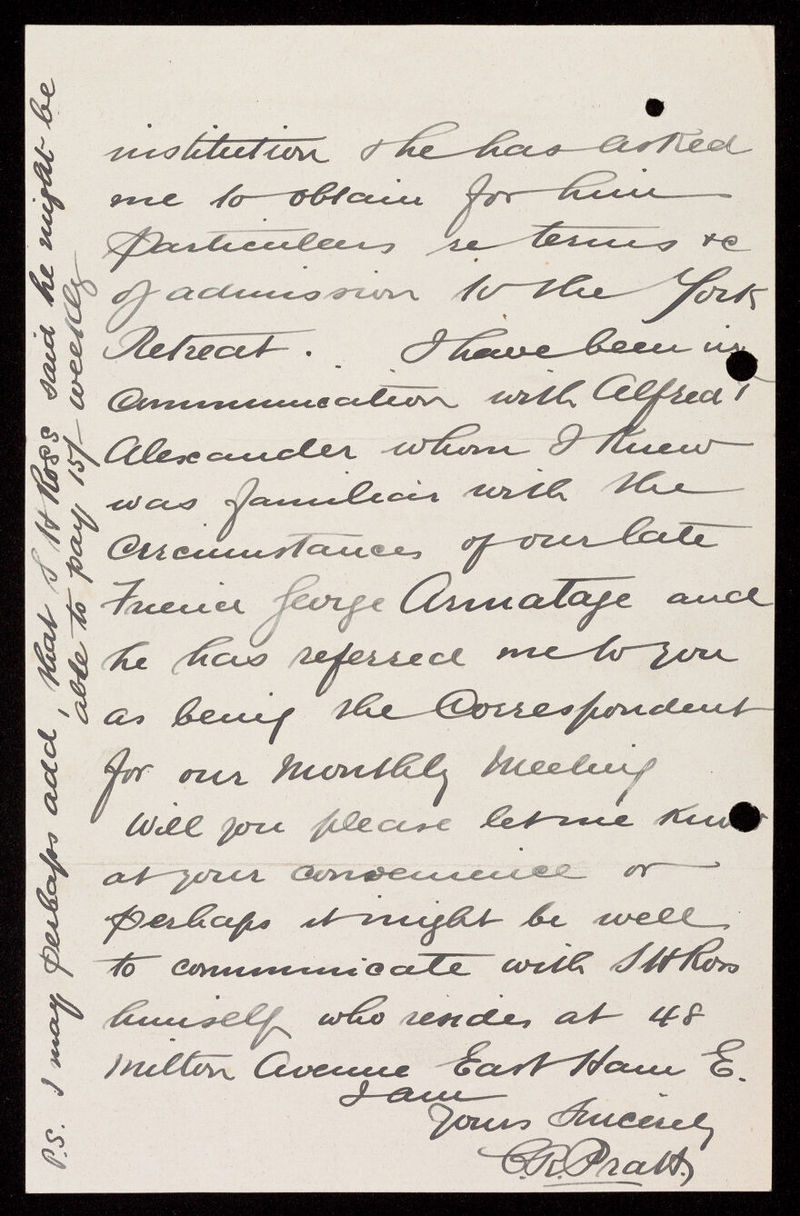 institution & he has asked
me to obtain for him
particulars re terms &c
of admission to the York
Retreat. I have been in
Communication with Alfred T
Alexander whom I knew
was familiar with the
Circumstances of our late
Friend George Armatage and
he has referred me to you
as being the Correspondent
for our Monthly Meeting
Will you please let me know
at your convenience or
perhaps it might be well
to communicate with S H Ross
himself who resides at 48
Milton Avenue East Ham E.
I am
Yours Sincerely
C. R. Pratt
P.S. I may perhaps add, that S H Ross said he might be
able to pay 15/- weekly